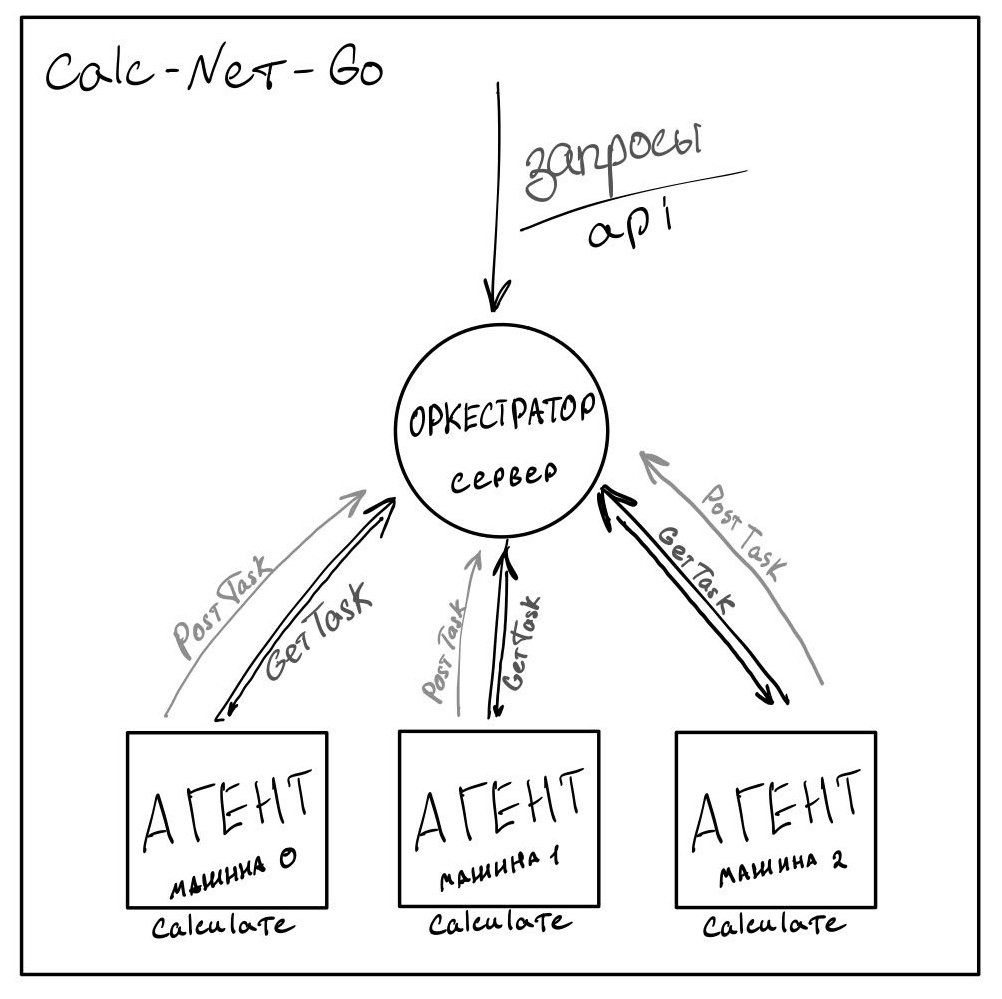 Calc-Net-Go
запросы
api
ОРКЕСТРАТОР
сервер
PostTask
GetTask
PostTask
GetTask
GetTask
PostTask
АГЕНТ
машина 0
Calculate
АГЕНТ
машина 1
Calculate
АГЕНТ
машина 2
Calculate